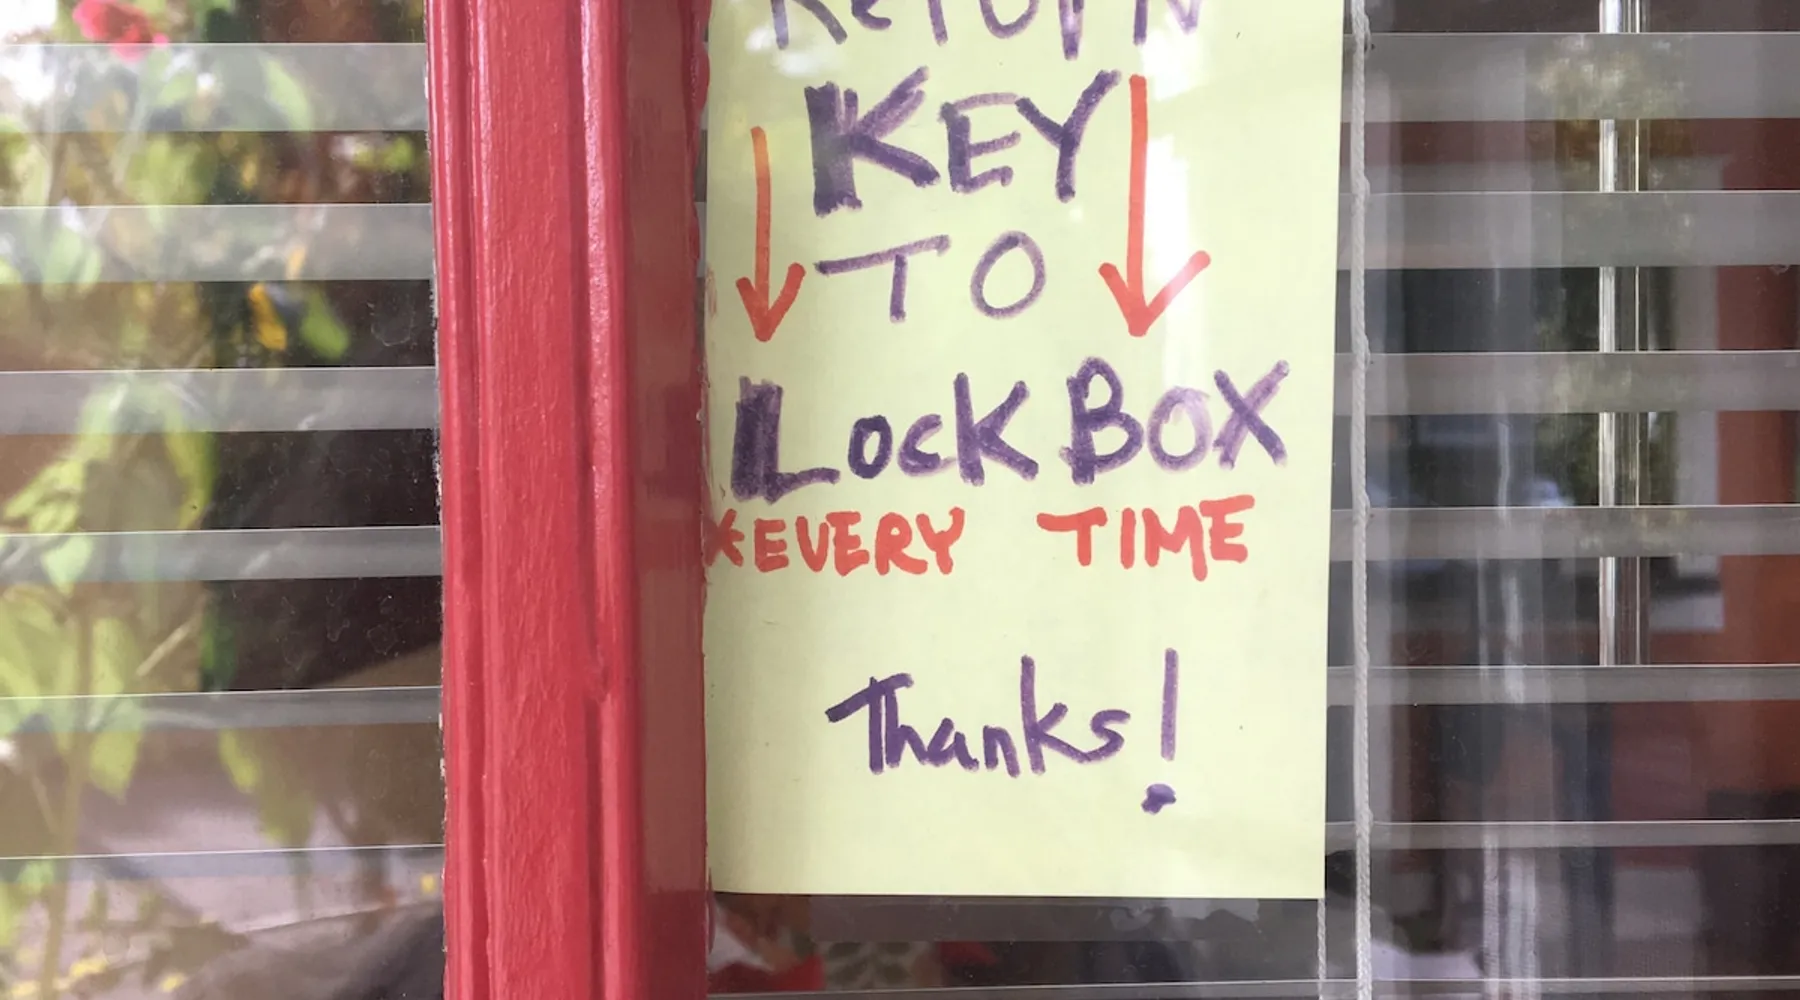 ReTURN
KEY
TO
LOCK BOX
*EVERY TIME
Thanks!